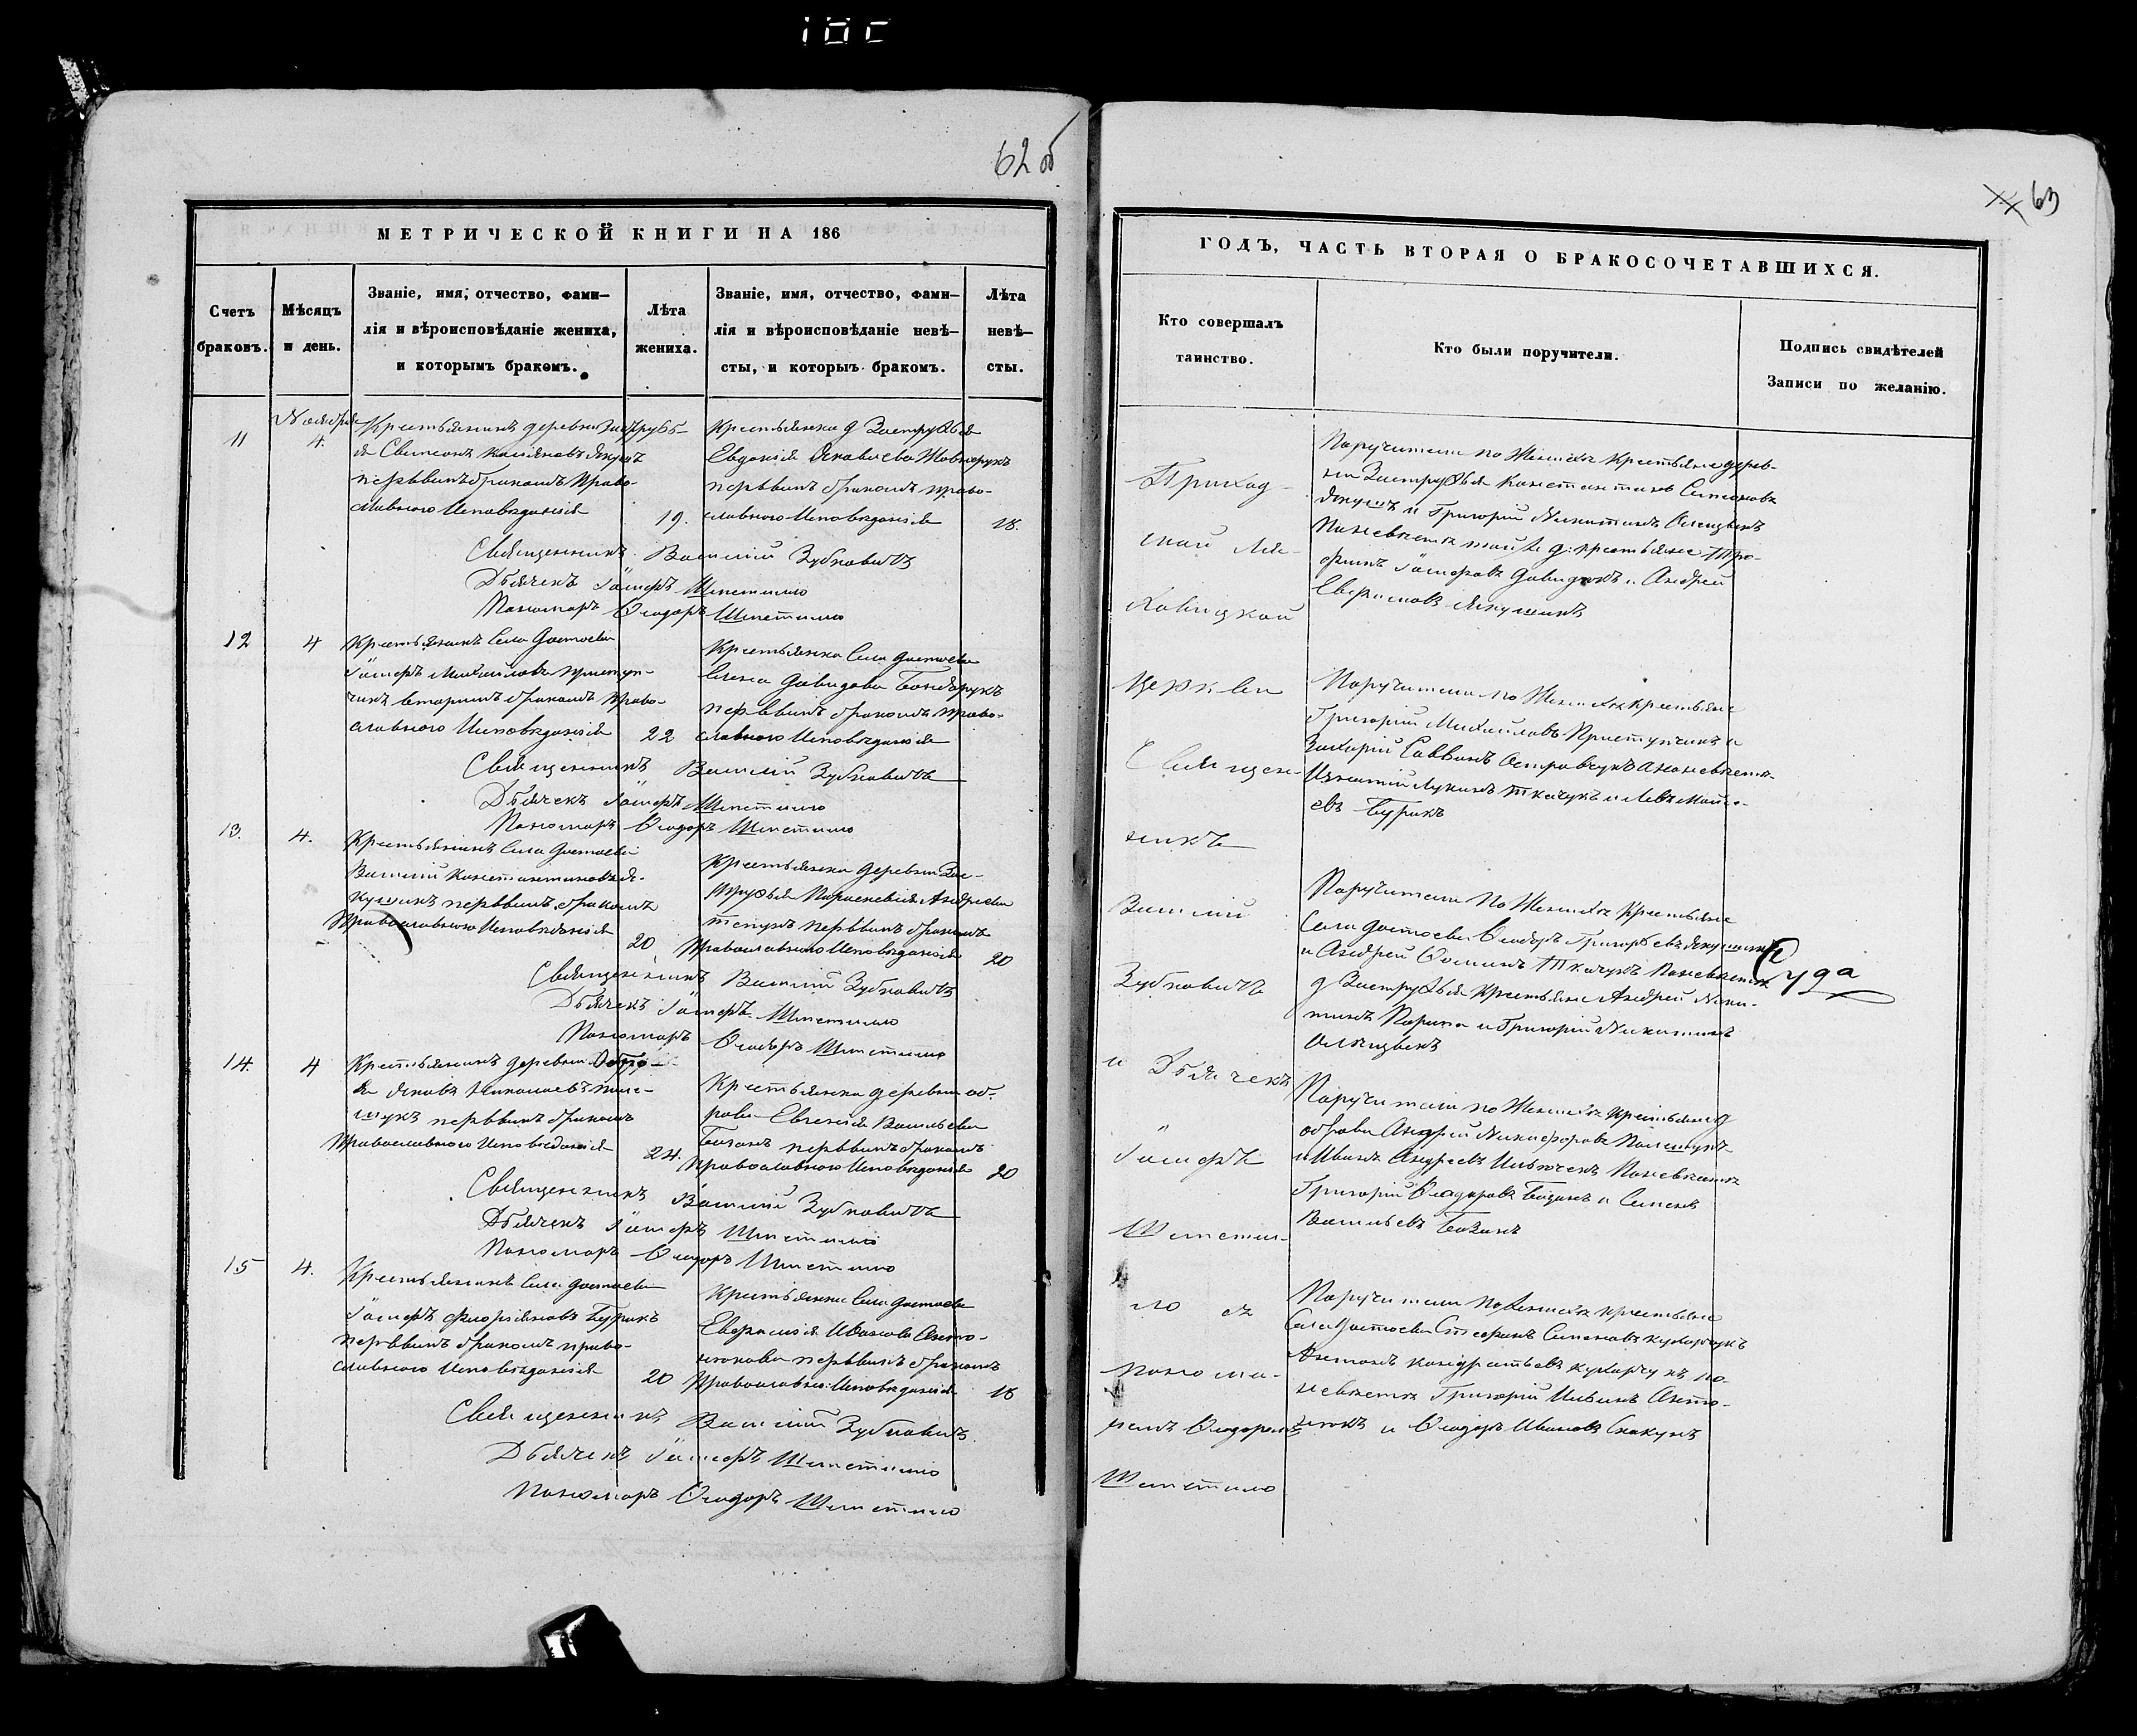 62 об
МЕТРИЧЕСКОЙ КНИГИ НА 186
Счетъ браковъ.
Мѣсяцъ и день.
Званіе, имя, отчество, фами—
лія и вѣроисповѣданіе жениха,
и которымъ бракомъ.
Лѣта
жениха.
Званіе, имя, отчество, фами—
лія и вѣроисповѣданіе невѣ—
сты, и которыъ бракомъ.
Лѣта
невѣ—
сты.
11
Ноября
4.
Крестьянинъ деревни
первымъ бракомъ право-
славного Исповѣданія
19.
Крестьянка д Застружья
Евдокія Яковлева
первымъ бракомъ право-
славного Исповѣданія
18.
Священникъ Василій Зубковичъ
Дьячекъ Іосифъ Шепетило
Пономаръ Ѳеодоръ Шепетило
12
4
Крестьянинъ Села Достоева
Іосифъ Михайловъ Приступ-
чикъ вторымъ бракомъ Право-
славного Исповѣданія
22
Крестьянка Села Достоева
Елена Давидова Бондарукъ
первымъ бракомъ право-
славного Исповѣданія
Священникъ Василій Зубковичъ
Дьячекъ Іосифъ Шепетило
Пономаръ Ѳеодоръ Шепетило
13.
4.
Крестьянинъ Села Достоева
Василій Константиновъ Я-
кушикъ первымъ бракомъ
Православного Исповѣданія
20
Крестьянка деревни Зас-
тружья Параскевія Андреева
первымъ бракомъ
Православного Исповѣданія
20
Священникъ Василій Зубковичъ
Дьячекъ Іосифъ Шепетило
Пономаръ Ѳеодоръ Шепетило
14.
4
Крестьянинъ деревни
Яковъ Николаевъ
первымъ бракомъ
Православного Исповѣданія
24.
Крестьянка деревни об-
рова Евгенія Васильева
первымъ бракомъ
Православного Исповѣданія
20
Священникъ Василій Зубковичъ
Дьячекъ Іосифъ Шепетило
Пономаръ Ѳеодоръ Шепетило
15
4.
Крестьянинъ Села Достоева
Іосифъ Флоріяновъ Бурикъ
первымъ бракомъ право-
славного Исповѣданія
20
Крестьянка Села Достоева
Евфимія Иванова Анто-
нюкова первымъ бракомъ
Православно: Исповѣданія
18
Священникъ Василій Зубковичъ
Дьячекъ Іосифъ Шепетило
Пономаръ Ѳеодоръ Шепетило
63
ГОДЪ, ЧАСТЬ ВТОРАЯ О БРАКОСОЧЕТАВШИХСЯ.
Кто совершалъ
таинство.
Кто были поручители.
Подпись свидѣтелей
Записи по желанію.
Приход-
ской Ля-
ховицкой
церкви
Священ-
никъ
Василій
Зубковичъ
и Дьячекъ
Іосифъ
Шепети-
ло съ
понома-
ремъ Ѳеодоромъ
Шепетило
Поручители по Женихѣ Крестьяне дерев-
ни Застружья Константинъ Симоновъ
и Григорій Никитинъ
По невѣстѣ той же д: крестьяне Тро-
фимъ Іосифовъ Давидюкъ и Андрей
Евфимовъ Якушикъ
Поручители по Женихѣ крестьяне
Григорій Михайловъ Приступчикъ и
Захарій Саввинъ Островчукъ а по невѣстѣ
Игнатій Лукинъ Ткачукъ и Левъ
Бурикъ
Поручители По Женихѣ Крестьяне
Села Достоева Ѳеодоръ Григорьевъ Якушикъ
и Андрей Ѳоминъ Ткачукъ По невѣстѣ
д Застружья Крестьяне Андрей Ники-
тинъ и Григорій Никитинъ
Суда
Поручители по Женихѣ крестьяне д
оброва Андрей Никифоровъ Полещукъ
и Иванъ Андреевъ По невѣстѣ
Григорій Ѳеодоровъ и Семенъ
Васильевъ
Поручители по Женихѣ крестьяне
Села Достоева Стефанъ Симоновъ Кухарчукъ
Антонъ Кондратьевъ Кухарчукъ по
невѣстѣ Григорій Ильинъ Анто-
нюкъ и Ѳеодоръ Ивановъ Скакунъ